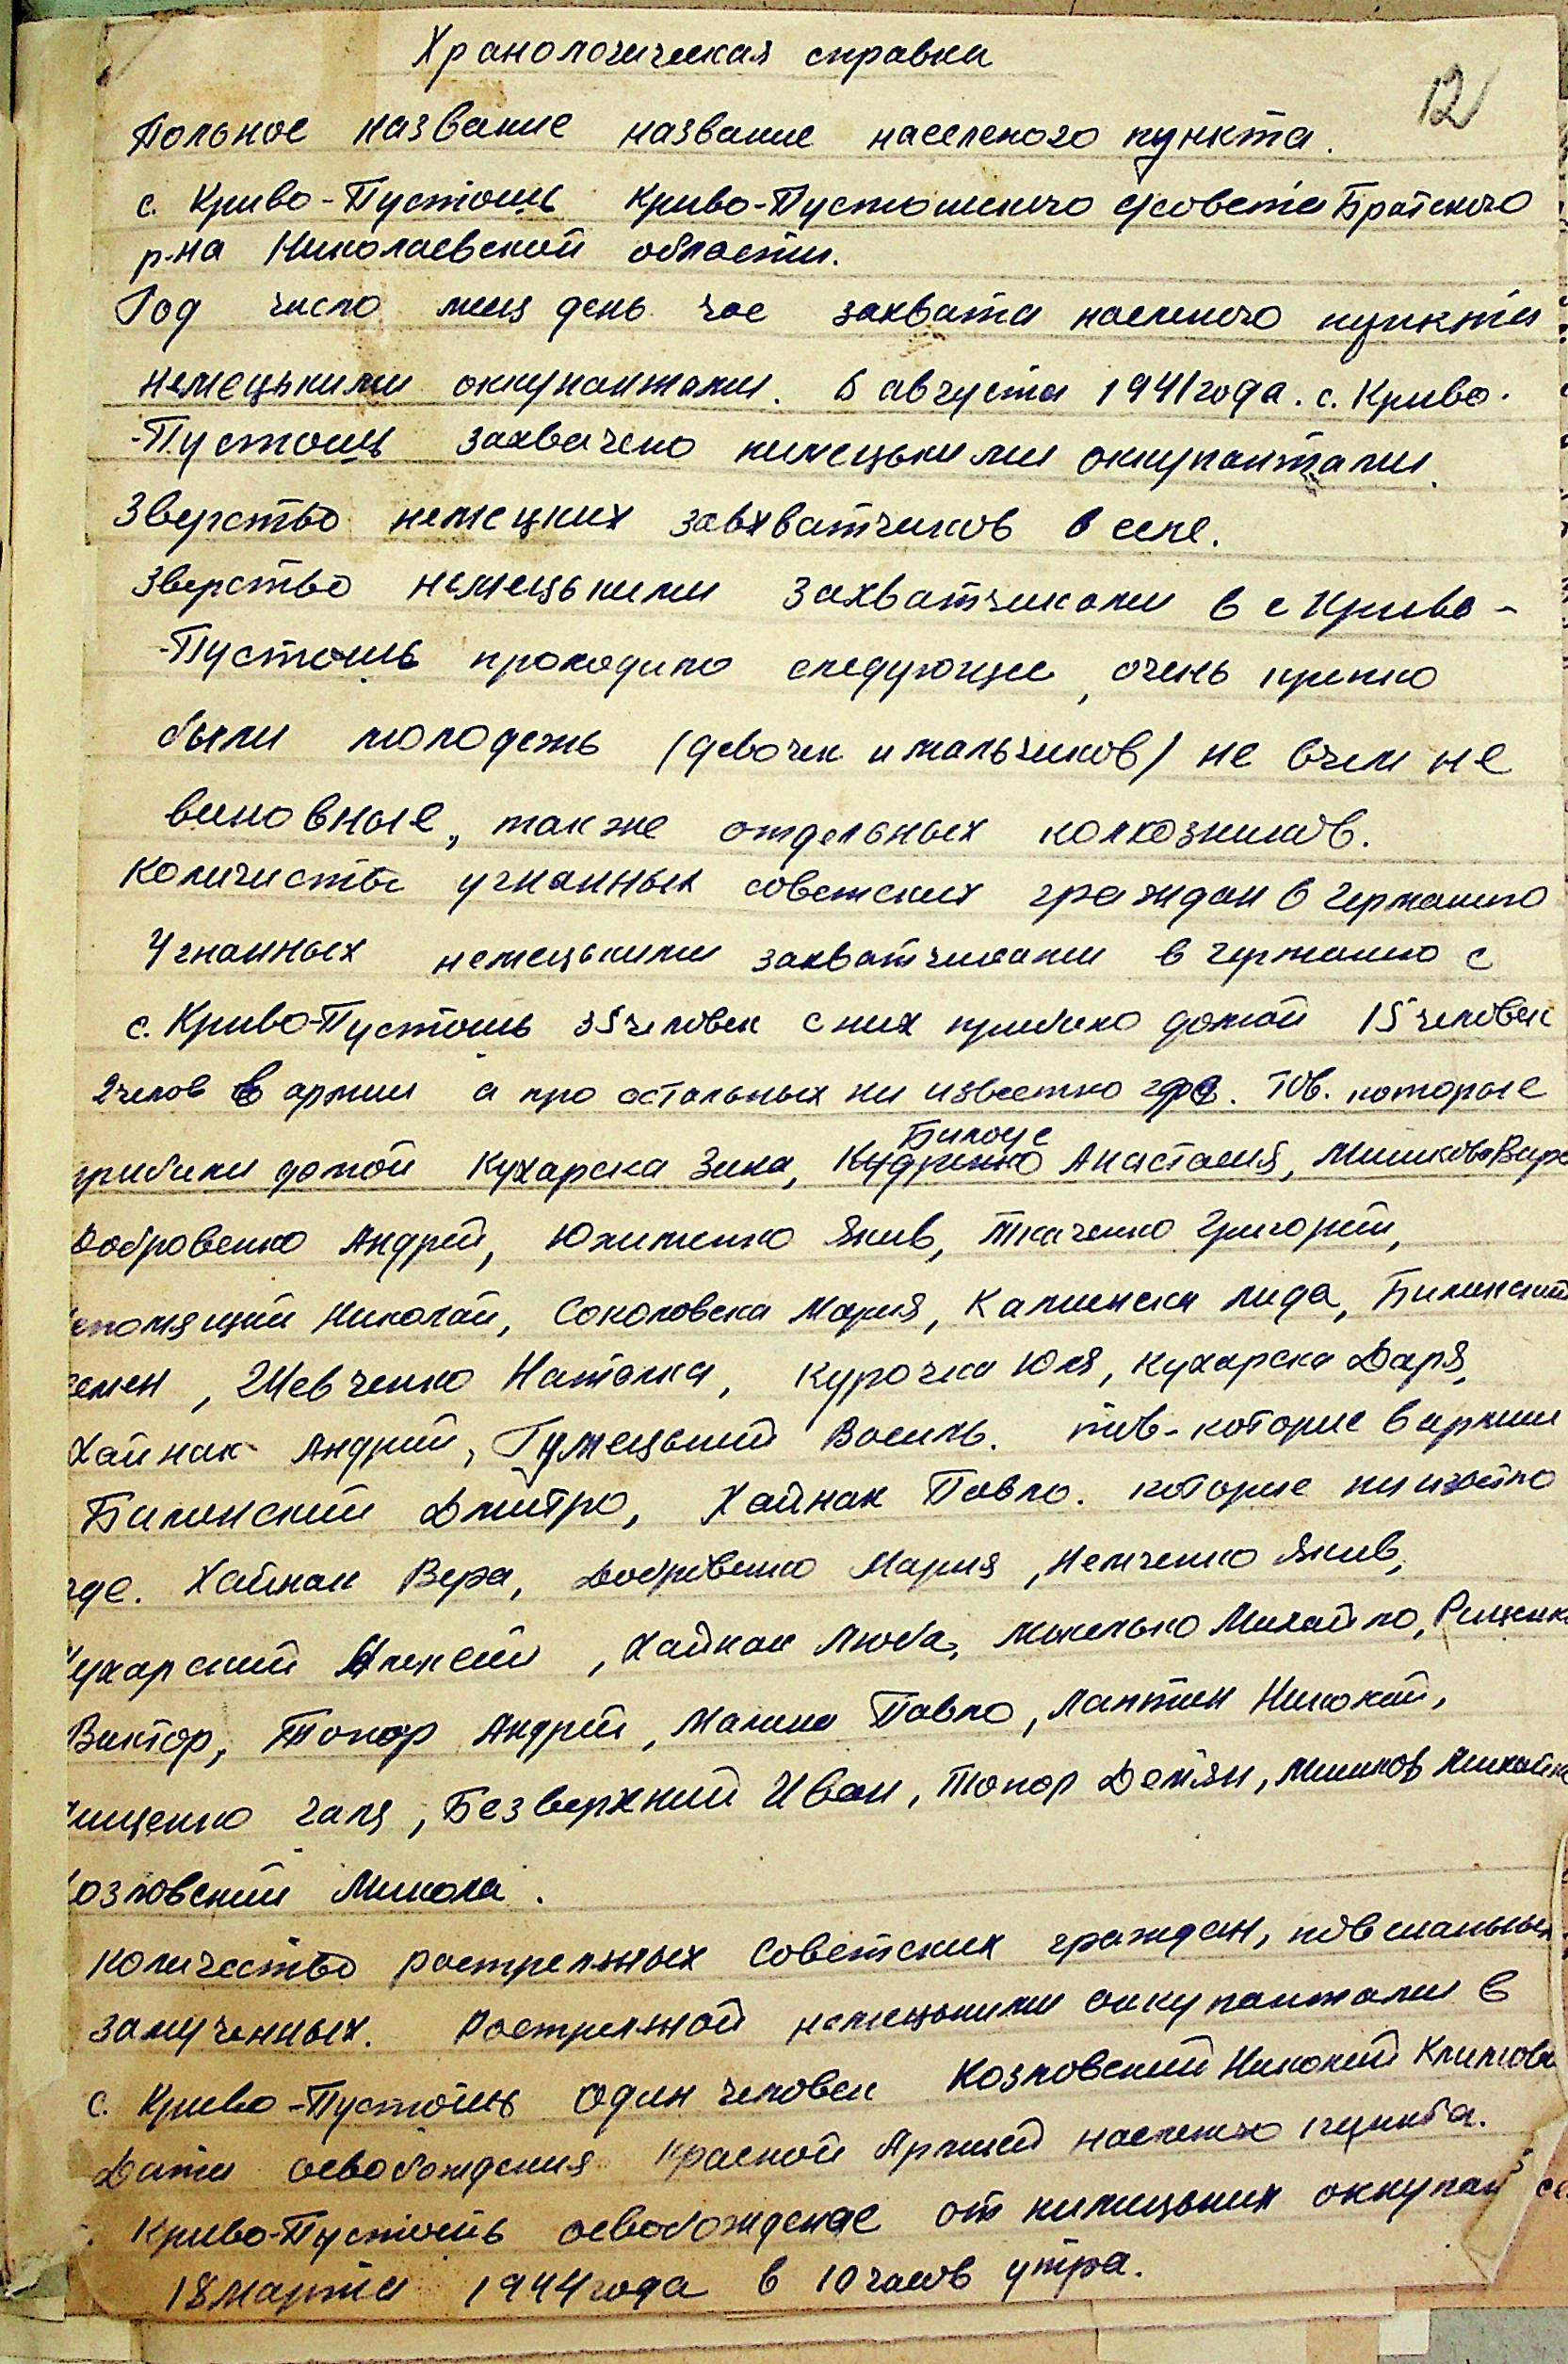 Хранологическая справка
12
Польное название название населеного пункта.
с. Криво-Пустошь Криво-Пустошского с/совета Братского
р-на Николаевской области.
Год число мец день час захвата населеного пункта
немецькими оккупантами. 6 августа 1941 года. с. Криво-
-Пустошь захвачено нимецькими оккупантами.
Зверство немецких завхватчиков в селе.
Зверство немецькими захватчиками в с Криво-
-Пустошь проходило следующие, очень крепко
были молодежь (девочек и мальчиков) не вчем не
виновные, также отдельных колхозников.
Количиство угнанных советских граждан в германию
Угнанных немецькими захватчиками в германию с
с. Криво-Пустошь 35 человек с них прибило домой 15 человек
2 челов в армии а про остальных ни известно где. Тов. которые
прибили домой Кухарска Зина, Билоус Анастасия, Мишкова Вира
Добровенко Андрей, Юхименко Якив, Ткаченко Григорий,
Николай, Соколовска Мария, Калинска лида, Билинский
семен, Шевченко Наталка, Курочка Юля, Кухарска Даря,
Хайнак Андрий, Гумецький Василь. тов-которие в армии
Билинский Дмитро, Хайнак Павло. которие ни
где. Хайнак Вера, Добровенко Мария, Немченко Якив,
Кухарский Алексей, Хайнак Люба, Михайло,
Виктор, Топор Андрей, Малина Павло, Лаптин Николай,
галя, Безверхний Иван, Топор Демян, Мишков Михайло
Козловский Микола.
Количество растрелжных Советских граждан, повешаных
замученных. Растрелжной немецькими оккупантами в
с. Криво-Пустошь один человек Козловский Николай Климов
Дата освобождения Красной Армией населеного пункта.
Криво-Пустошь освобожденое от нимецьких оккупан
18 марта 1944 года в 10 часов утра.